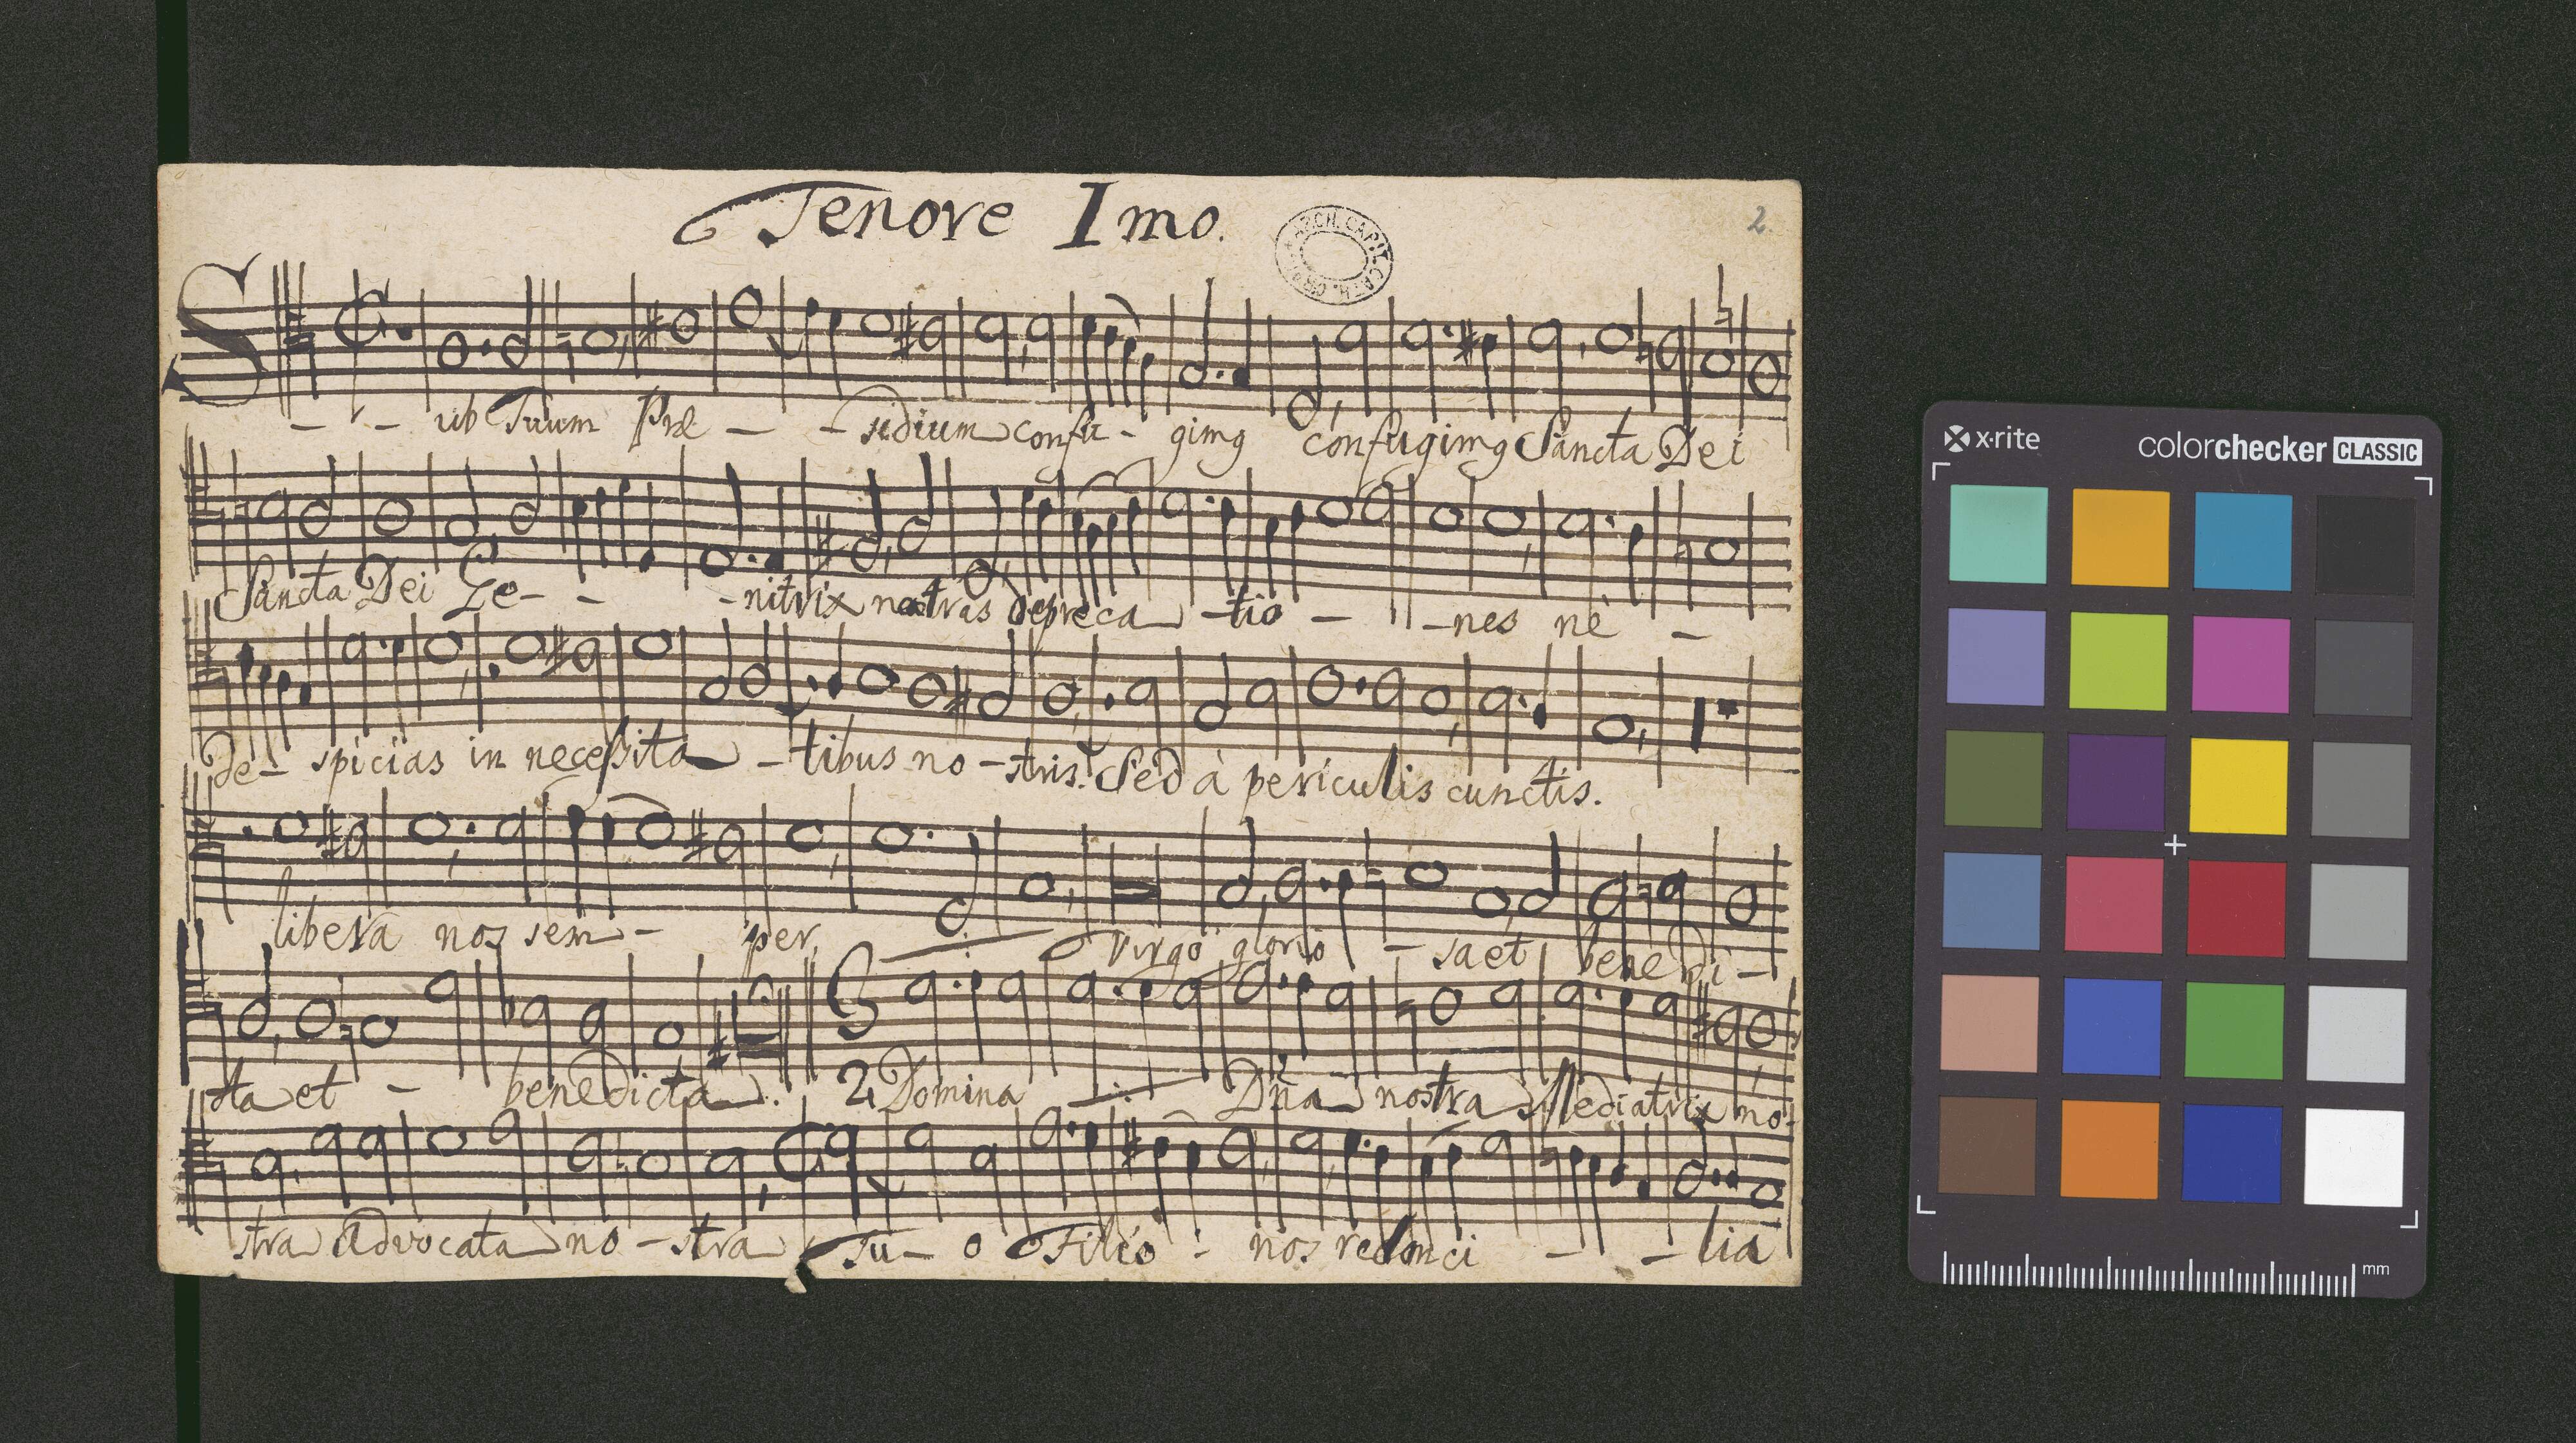 Tenore Imo.
2.
Sub Tuum Præ - - sidium confu - gimg confugimg Sancta Dei
Sancta Dei Ge - - - nitrix nostras depreca - tio - - nes nè -
de - spicias in necessita - tibus no - stris. Sed à periculis cunctis.
libera nos sem - per, virgo glorio - sa et benedi -
cta et - benedicta. 2 Domina Dña nostra Mediatrix no -
stra Advocata no - stra Tu - o Filio - nos reconci - - lia
x·rite colorchecker CLASSIC
mm